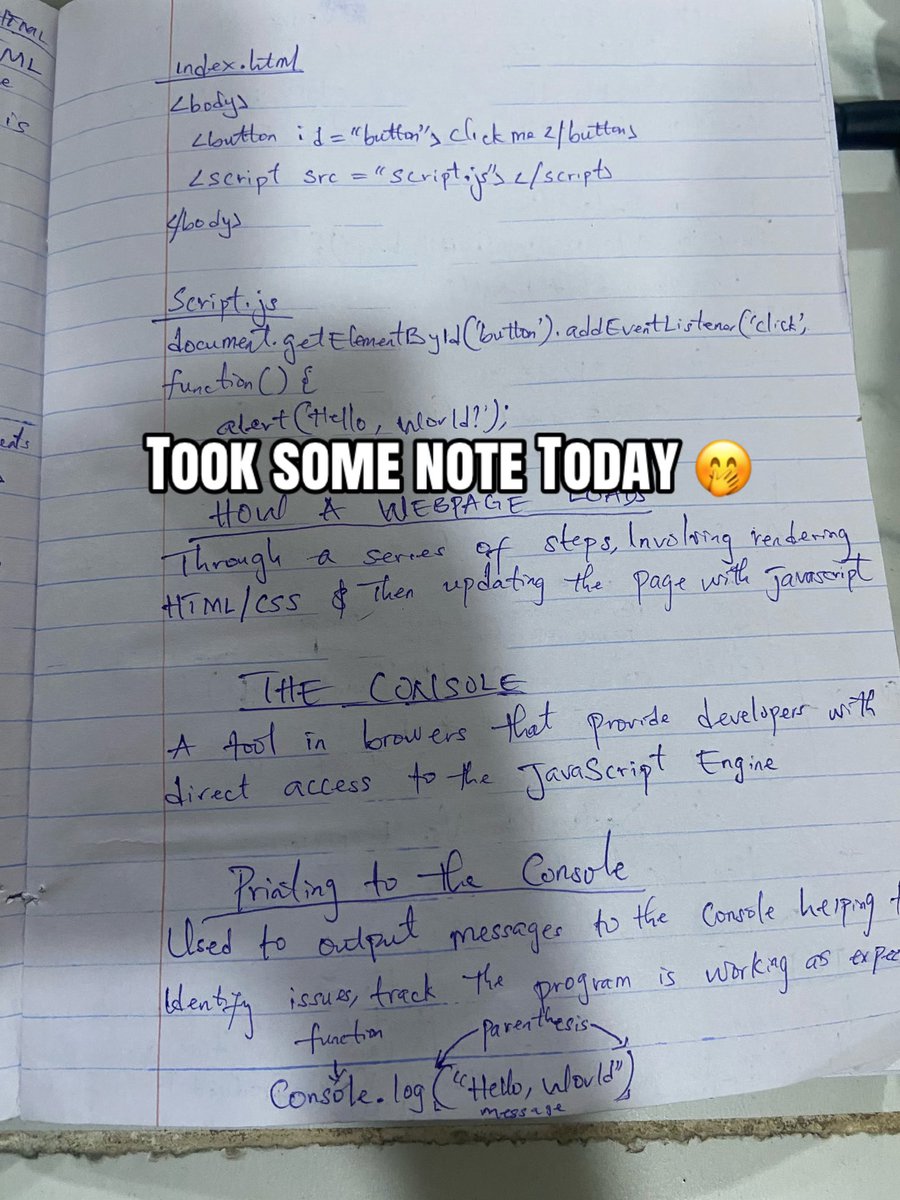 HTML
ML
e
is
eats
index.html
<body>
<button id="button">click me </button>
<script src="script.js"></script>
</body>
Script.js
document.getElementById('button').addEventListener('click',
function() {
alert('Hello, World!');
TOOK SOME NOTE TODAY 🤭
HOW A WEBPAGE LOADS
Through a series of steps, Involving rendering
HTML/CSS & Then updating the page with Javascript
THE CONSOLE
A tool in browers that provide developers with
direct access to the JavaScript Engine
Printing to the Console
Used to output messages to the Console helping
Identify issues, track the program is working as expec
function
parenthesis
Console.log("Hello, World")
message